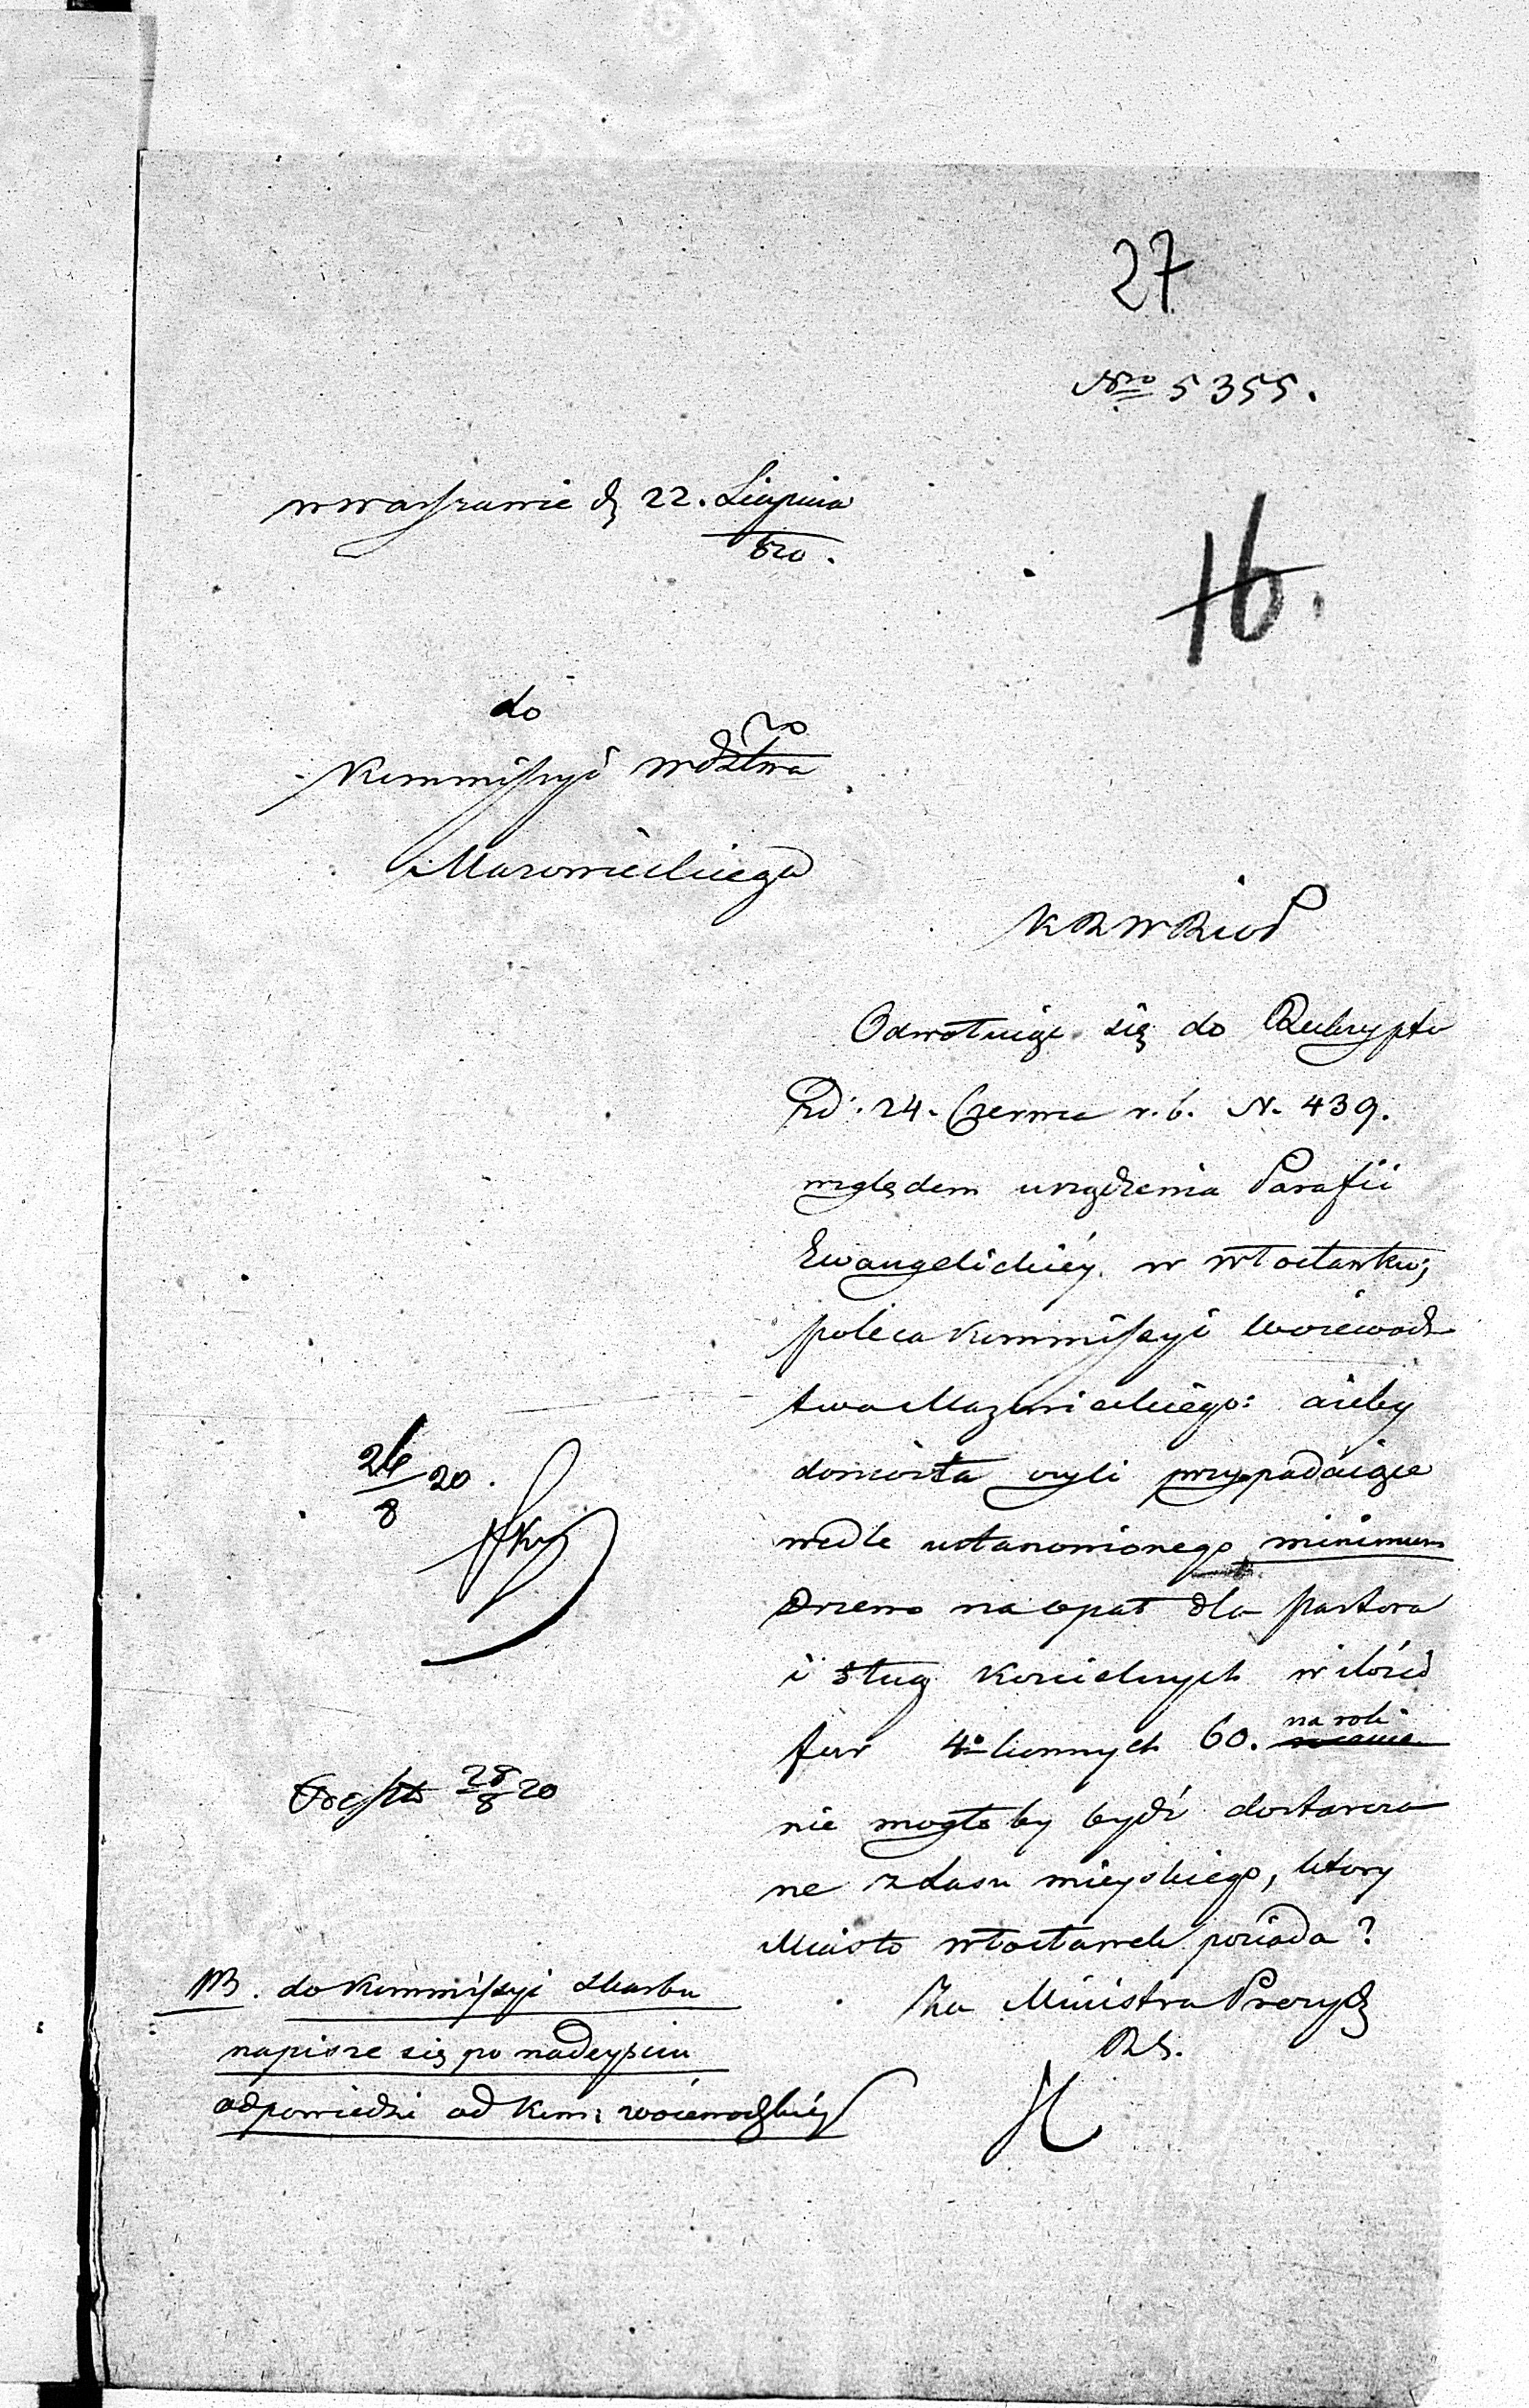 27
Nro 5355.
w Warszawie d 22. Lipca
820.
16.
do
Kommissyi Wdztwa
Mazowieckiego
K R W R i O P
Odwołuiąc się do Reskryptu
z d. 24. Czerwca r. b. N. 439.
względem urządzenia Parafii
Ewangelickiéy w Włocławku;
poleca Kommissyi Woiewódz
twa Mazowieckiego: ażeby
doniosła czyli przypadaiące
wedle ustanowionego minimum
Drzewo na opał dla Pastora
i sług Kościelnych w ilości
fur 4o konnych 60. na rok
nie mogłoby bydź dostarcza
ne z Lasu mieyskiego, który
Miasto Włocławek posiada?
Za Ministra Prezyd
R S.
26/8 20.
28/8 20
NB. do Kommissyi Skarbu
napisze się po nadeyściu
odpowiedzi od Kom: woiewodzkiéy